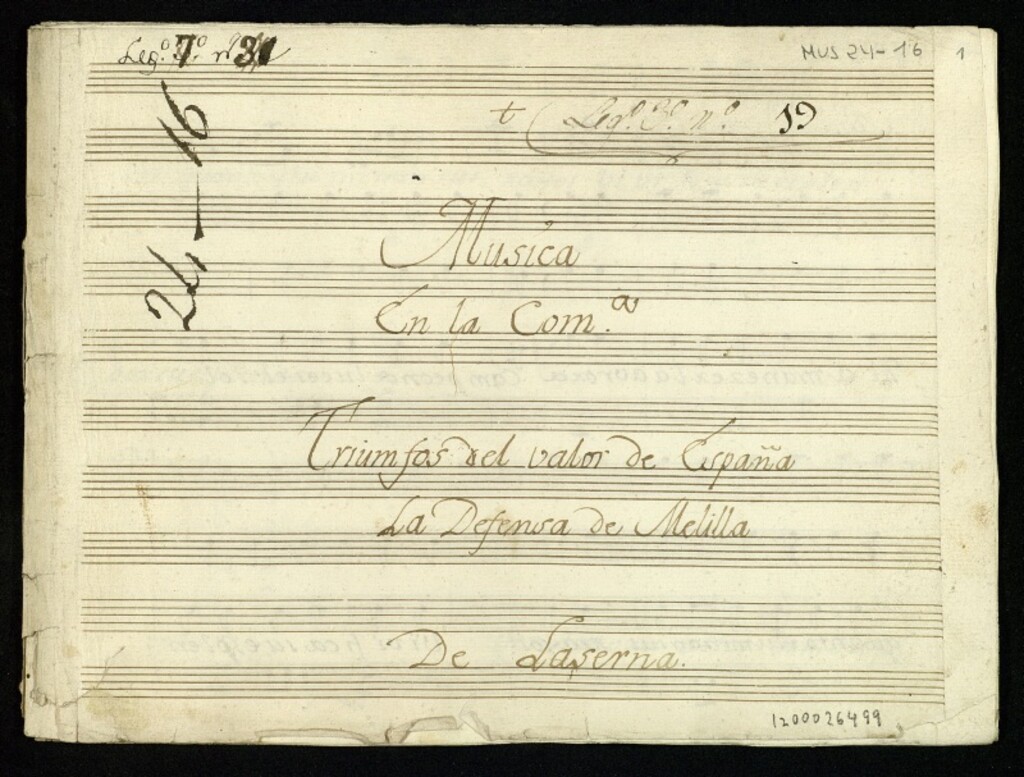 Leg.º 7.º nº 31
MUS 24-16
1
24-16
t Leg.º 3.º n.º 19
Musica
En la Com.ª
Triumfos del valor de España
La Defensa de Melilla
De Laserna.
1200026499